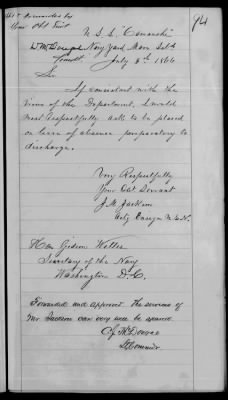 94
U.S.S. "Comanche"
Navy Yard, Mare Isld
July 3th 1866
Sir
If consistent with the
views of the Department, I would
most respectfully ask to be placed
on leave of absence preparatory to
discharge.
Very Respectfully
Your Obt Servant
J. M. Jackson
Actg Ensign U.S.N.
Hon Gideon Welles
Secretary of the Navy
Washington D.C.
Forwarded and approved. The services of
Mr Jackson can very well be spared
C. J. McDougal
Lt Commdr